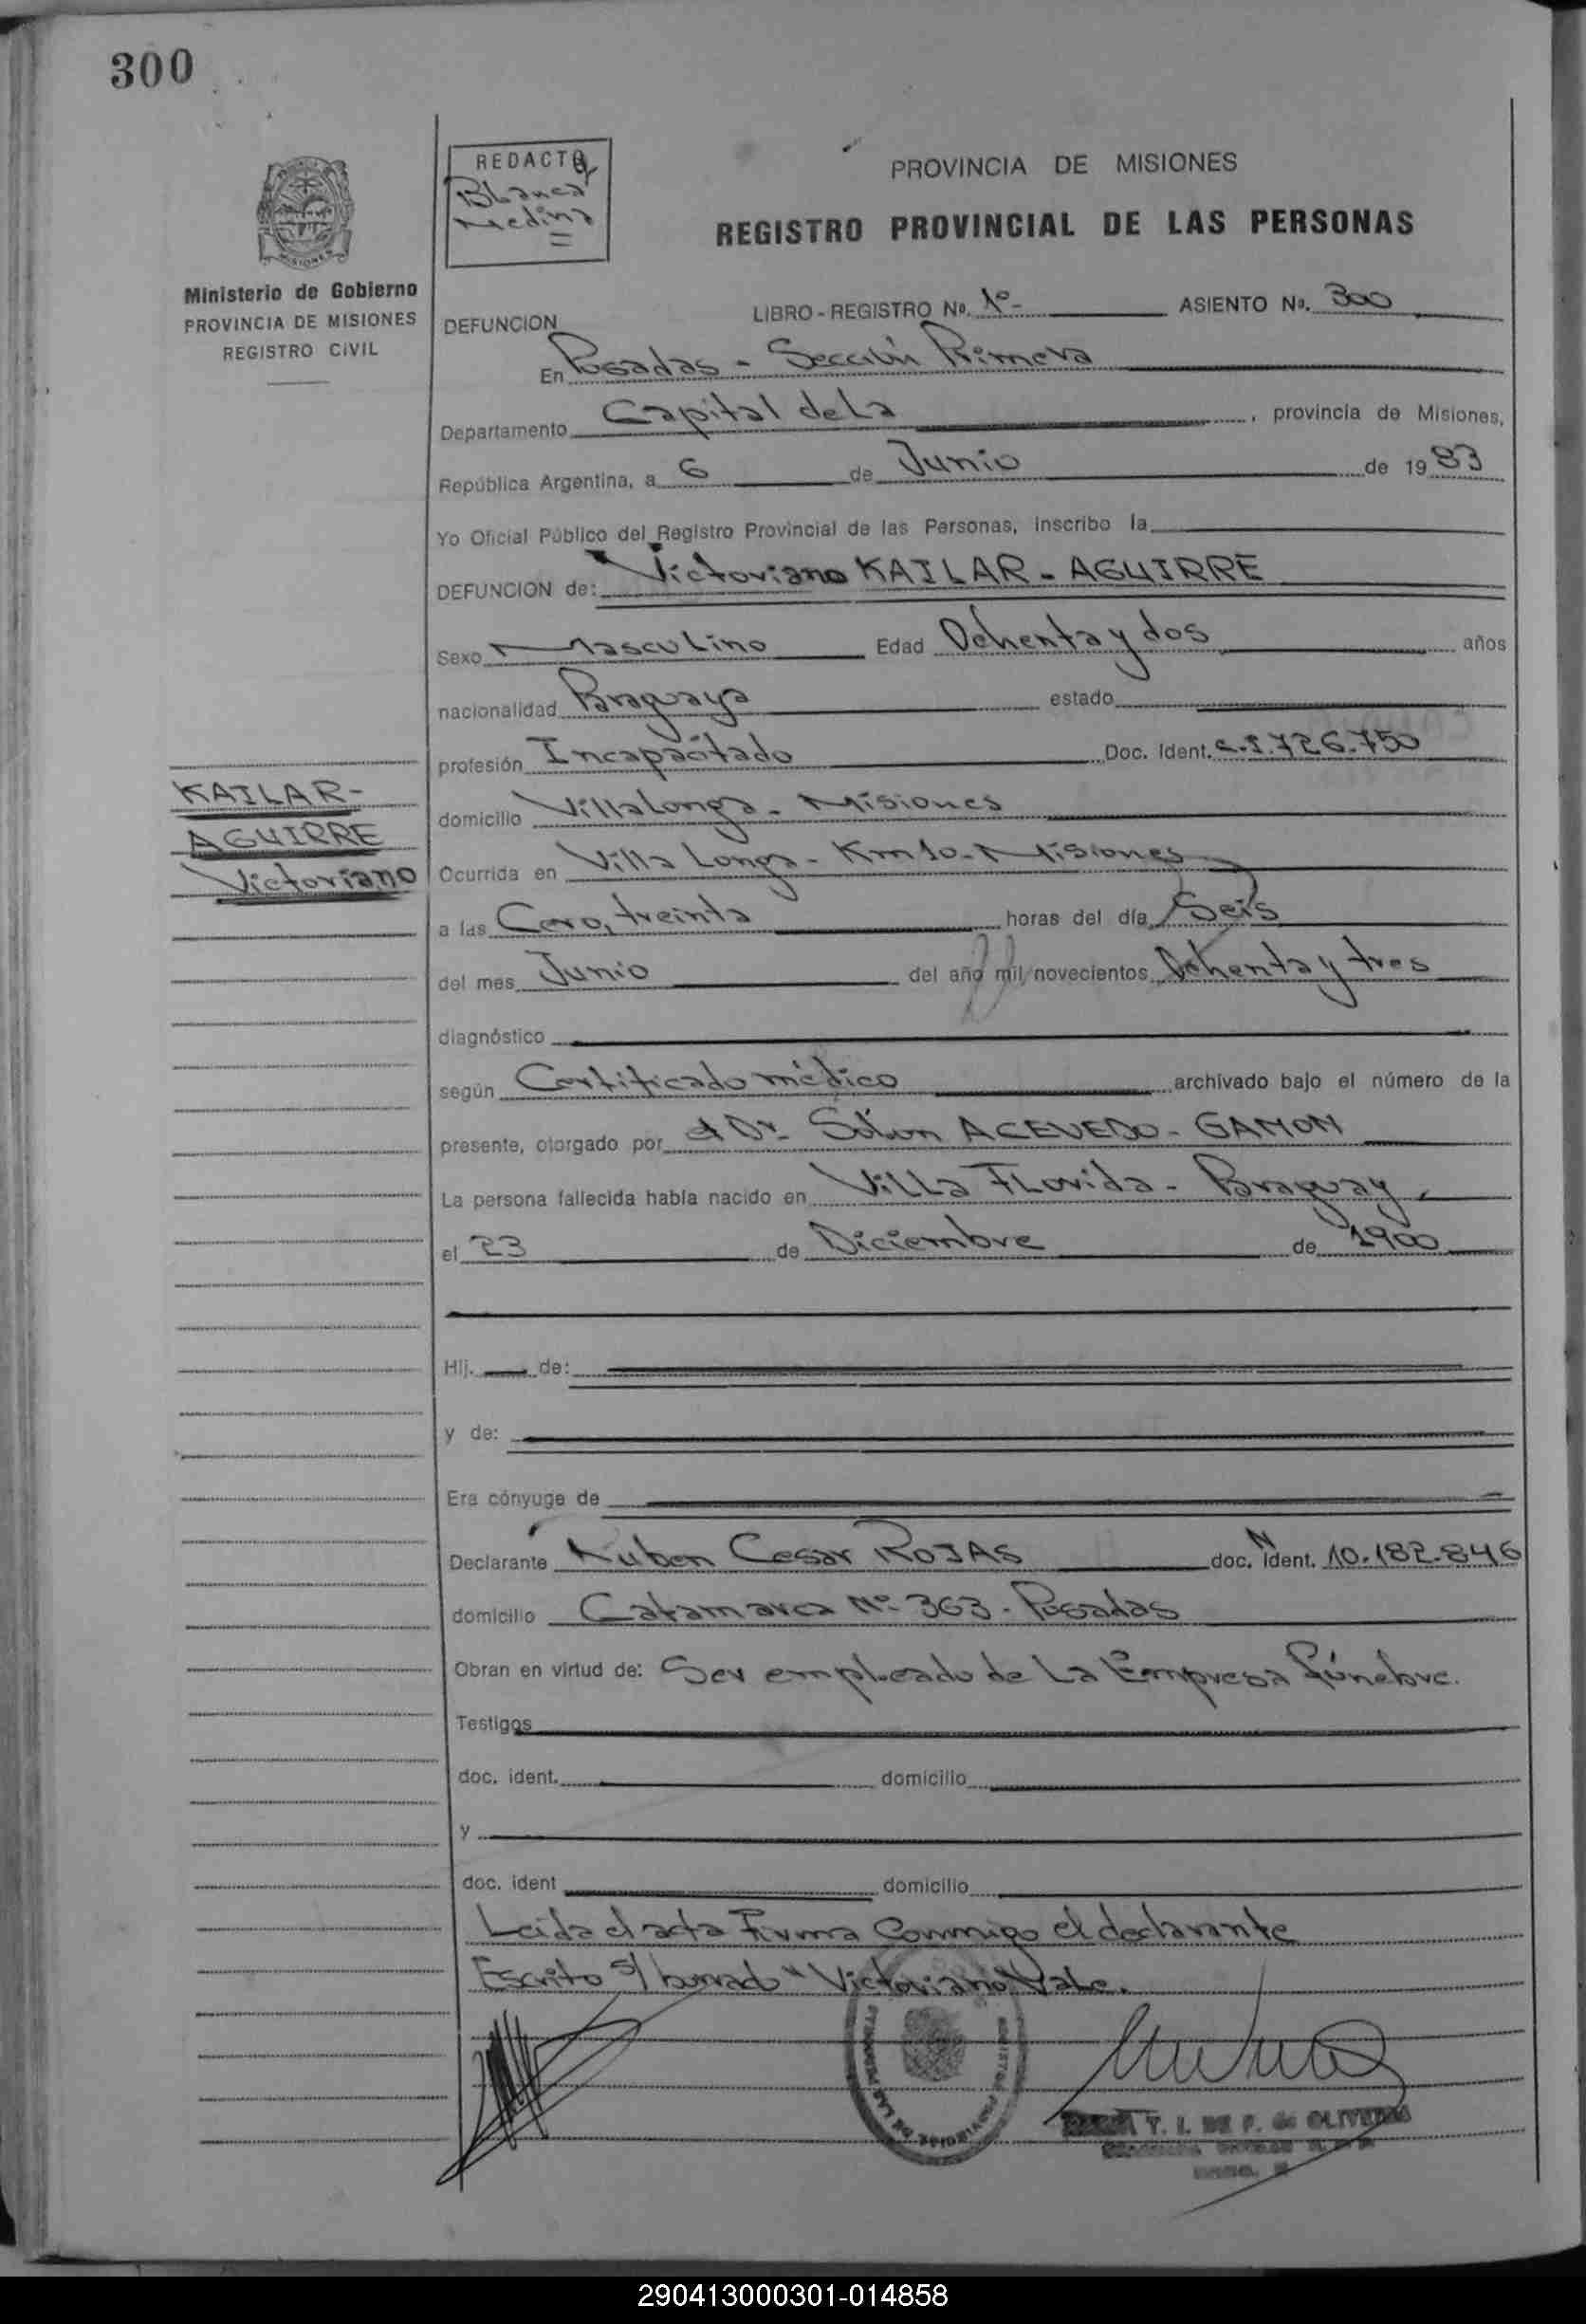 300
REDACTO
Blanca
Medina
PROVINCIA DE MISIONES
REGISTRO PROVINCIAL DE LAS PERSONAS
MISIONES
Ministerio de Gobierno
PROVINCIA DE MISIONES
REGISTRO CIVIL
LIBRO - REGISTRO No. 1º - ASIENTO No. 300
DEFUNCION
En Posadas - Sección Primera
Departamento Capital de La , provincia de Misiones,
República Argentina, a 6 de Junio de 1983
Yo Oficial Público del Registro Provincial de las Personas, inscribo la
DEFUNCION de: Victoriano KAILAR - AGUIRRE
Sexo Masculino Edad Ochenta y dos años
nacionalidad Paraguaya estado
profesión Incapacitado Doc. Ident. C.I. 726.750
KAILAR-
AGUIRRE
Victoriano
domicilio Villa Longa - Misiones
Ocurrida en Villa Longa - Km 10 - Misiones
a las Cero, treinta horas del día Seis
del mes Junio del año mil novecientos Ochenta y tres
diagnóstico
según Certificado médico archivado bajo el número de la
presente, otorgado por el Dr. Solon ACEVEDO - GAMON
La persona fallecida había nacido en Villa Florida - Paraguay
el 23 de Diciembre de 1900
Hij. de:
y de:
Era cónyuge de
Declarante Ruben Cesar ROJAS doc. N ident. 10.182.846
domicilio Catamarca Nº 363 - Posadas
Obran en virtud de: Ser empleado de La Empresa Fúnebre.
Testigos
doc. ident. domicilio
y
doc. ident domicilio
Leida el acta Firma Conmigo el declarante
Escrito s/ borrado "Victoriano" Vale.
REGISTRO PROVINCIAL DE LAS PERSONAS
T. I. DE F. de OLIVEIRA
290413000301-014858